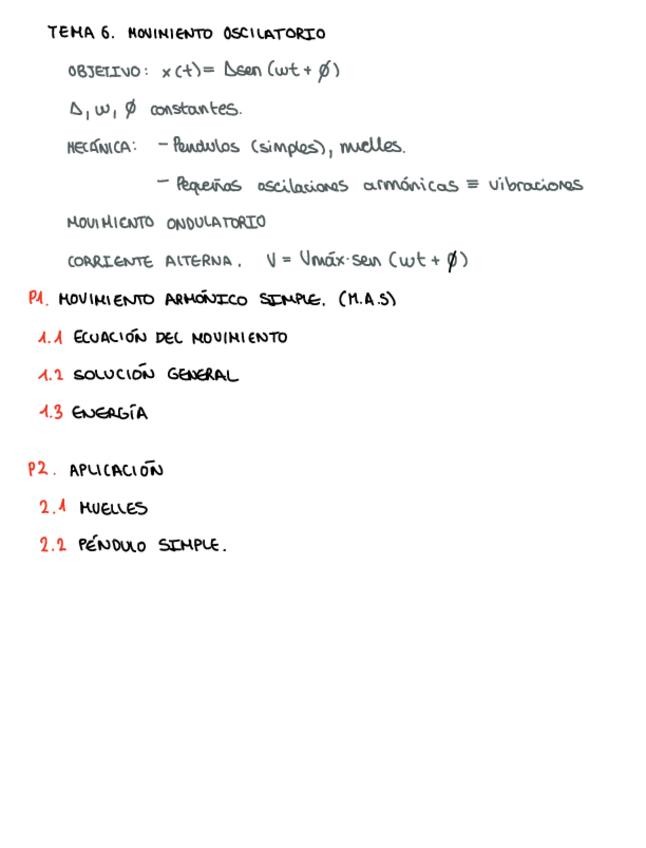 TEMA 6. MOVIMIENTO OSCILATORIO
OBJETIVO: x(t) = Δsen (wt + ϕ)
Δ, w, ϕ constantes.
MECÁNICA: - Pendulos (simples), muelles.
- Pequeñas oscilaciones armónicas ≡ vibraciones
MOVIMIENTO ONDULATORIO
CORRIENTE ALTERNA. V = Vmáx·sen (wt + ϕ)
P1. MOVIMIENTO ARMÓNICO SIMPLE. (M.A.S)
1.1 ECUACIÓN DEL MOVIMIENTO
1.2 SOLUCIÓN GENERAL
1.3 ENERGÍA
P2. APLICACIÓN
2.1 MUELLES
2.2 PÉNDULO SIMPLE.